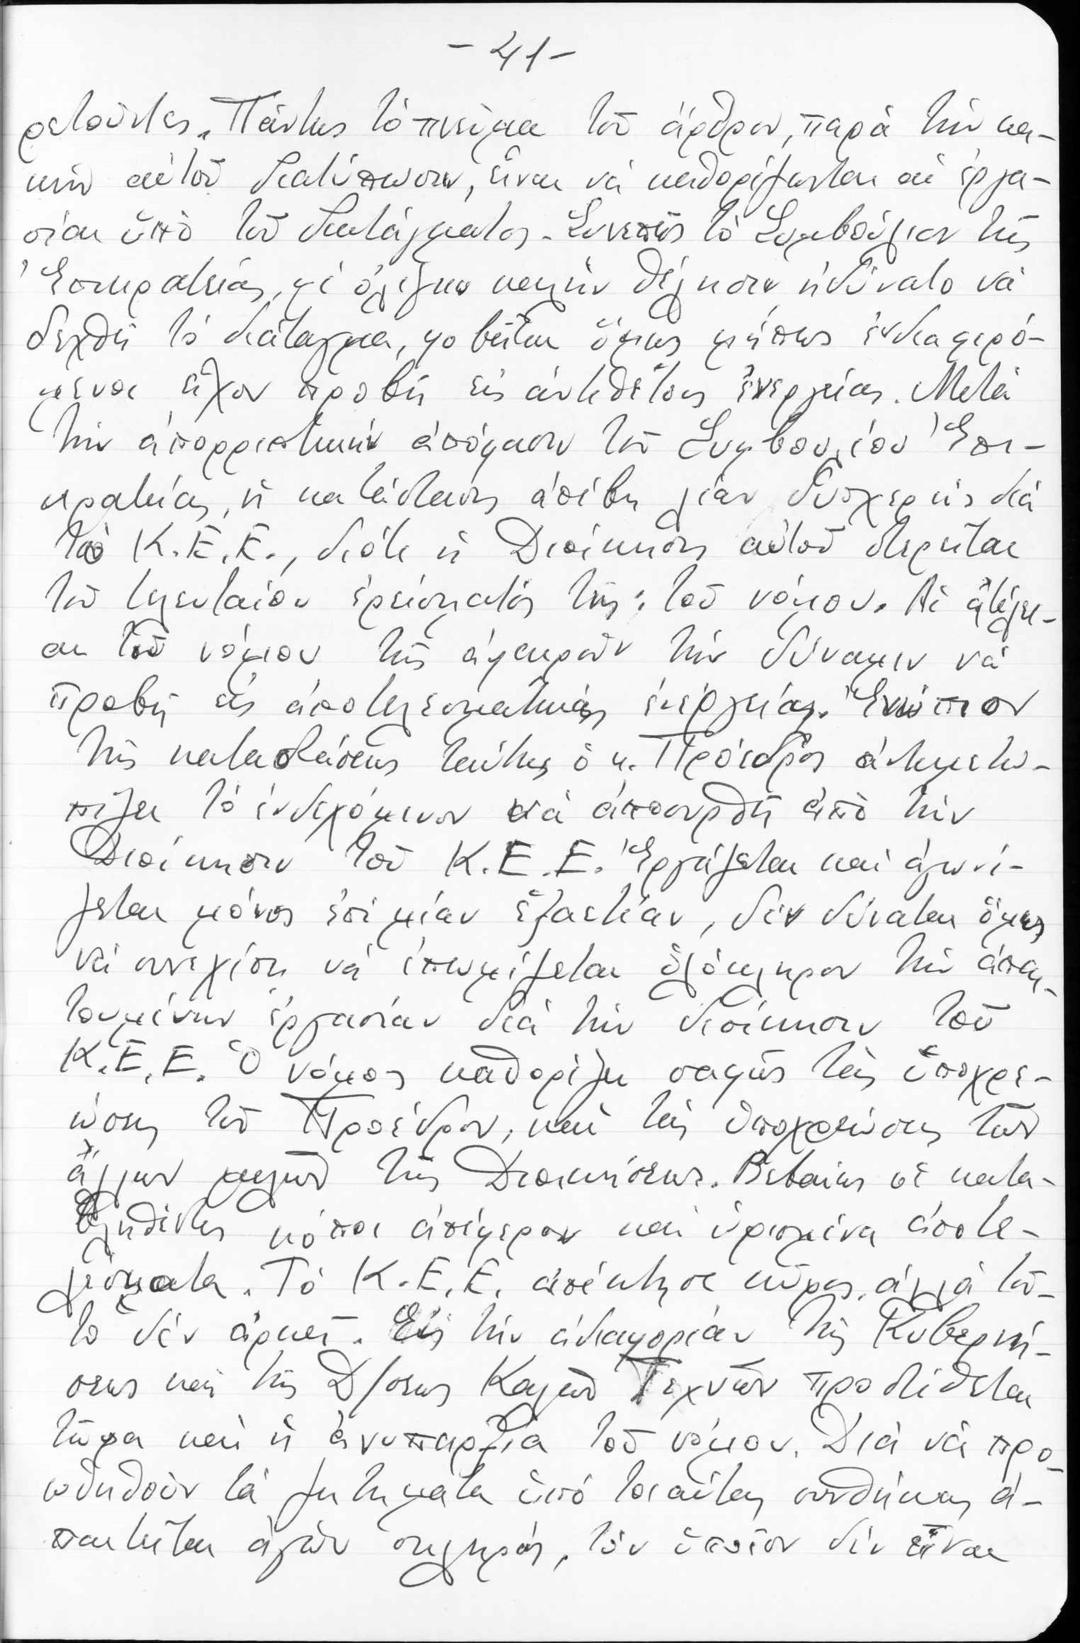 - 41 -
ρετοῦντες. Πάντως τό πνεῦμα τοῦ ἄρθρου, παρά τήν κα-
κήν αὐτοῦ διατύπωσιν, εἶναι νά καθορίζωνται αἱ ἐργα-
σίαι ὑπό τοῦ διατάγματος. Συνεπῶς τό Συμβούλιον τῆς
Ἐπικρατείας, μέ ὀλίγην καλήν θέλησιν ἠδύνατο νά
δεχθῆ τό διάταγμα, φοβεῖται ὅμως μήπως ἐνδιαφερό-
μενοι εἶχον προβῆ εἰς ἀντιθέτους ἐνεργείας. Μετά
τήν ἀπορριπτικήν ἀπόφασιν τοῦ Συμβουλίου Ἐπι-
κρατείας, ἡ κατάστασις ἀπέβη λίαν δυσχερής διά
τό Κ.Ε.Ε., διότι ἡ Διοίκησις αὐτοῦ στερεῖται
τοῦ τελευταίου ἐρείσματός της: τοῦ νόμου. Αἱ ἀτέλει-
αι τοῦ νόμου τῆς ἀφαιροῦν τήν δύναμιν νά
προβῆ εἰς ἀποτελεσματικάς ἐνεργείας. Ἐνώπιον
τῆς καταστάσεως ταύτης ὁ κ. Πρόεδρος ἀντιμετω-
πίζει τό ἐνδεχόμενον νά ἀποσυρθῆ ἀπό τήν
Διοίκησιν τοῦ Κ.Ε.Ε. Ἐργάζεται καί ἀγωνί-
ζεται μόνος ἐπί μίαν ἑξαετίαν, δέν δύναται ὅμως
νά συνεχίση νά ἐπωμίζεται ὁλόκληρον τήν ἀπαι-
τουμένην ἐργασίαν διά τήν διοίκησιν τοῦ
Κ.Ε.Ε. Ὁ νόμος καθορίζει σαφῶς τάς ὑποχρε-
ώσεις τοῦ Προέδρου, καί τάς ὑποχρεώσεις τῶν
ἄλλων μελῶν τῆς Διοικήσεως. Βεβαίως οἱ κατα-
βληθέντες κόποι ἀπέφερον καί ὡρισμένα ἀποτε-
λέσματα. Τό Κ.Ε.Ε. ἀπέκτησε κῦρος, ἀλλά τοῦ-
το δέν ἀρκεῖ. Εἰς τήν ἀδιαφορίαν τῆς Κυβερνή-
σεως καί τῆς Δ/σεως Καλῶν Τεχνῶν προστίθεται
τώρα καί ἡ ἀνυπαρξία τοῦ νόμου. Διά νά προ-
ωθηθοῦν τά ζητήματα ὑπό τοιαύτας συνθήκας ἀ-
παιτεῖται ἀγών σκληρός, τόν ὁποῖον δέν εἶναι